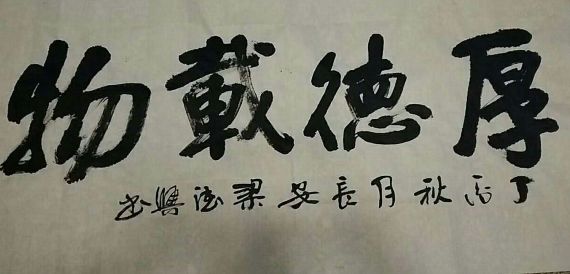 厚德載物
丁酉秋月長安梁德興書